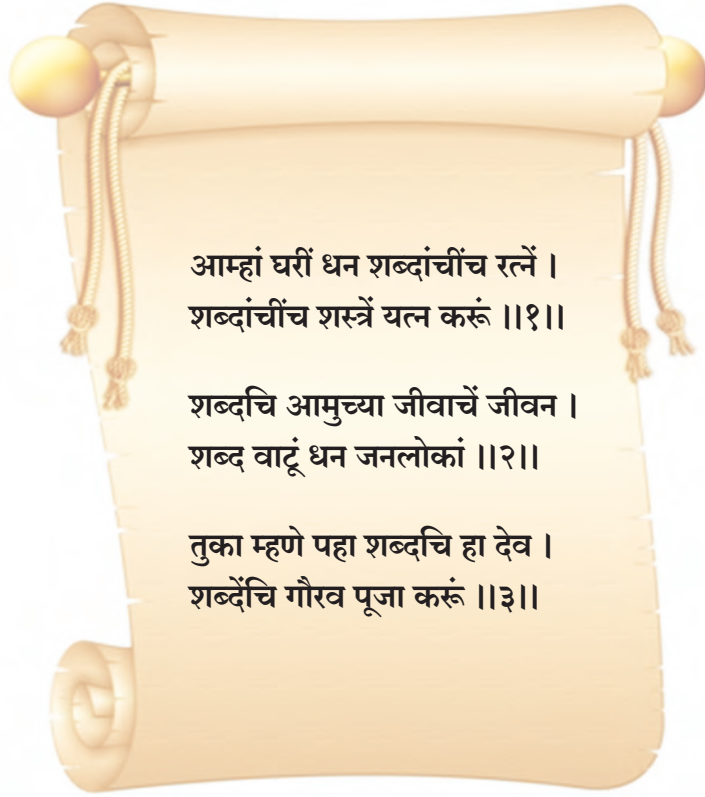 आम्हां घरीं धन शब्दांचींच रत्नें ।
शब्दांचींच शस्त्रें यत्न करूं ।।१।।
शब्दचि आमुच्या जीवाचें जीवन ।
शब्द वाटूं धन जनलोकां ।।२।।
तुका म्हणे पहा शब्दचि हा देव ।
शब्देंचि गौरव पूजा करूं ।।३।।